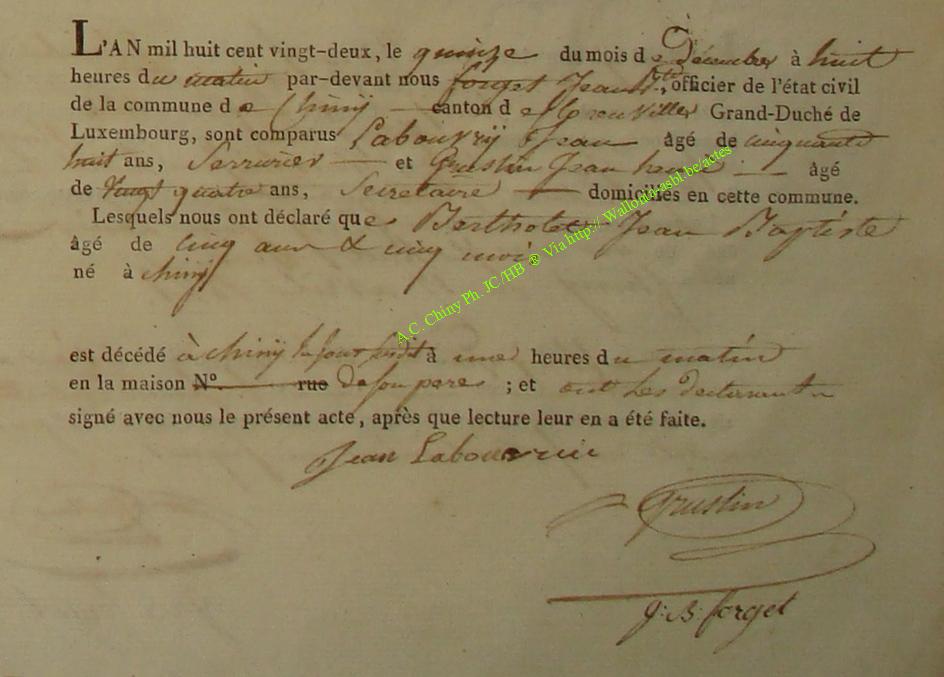 L'AN mil huit cent vingt-deux, le quinze du mois de Décembre à huit
heures du matin par-devant nous forget Jean Bte, officier de l'état civil
de la commune de Chiny canton de florenville Grand-Duché de
Luxembourg, sont comparus Labouvrÿ Jean âgé de cinquante
huit ans, Serrurier et Grustin Jean henri âgé
de Vingt quatre ans, Secretaire domiciliés en cette commune.
Lesquels nous ont déclaré que Bertholet Jean Baptiste
âgé de cinq ans & cinq mois
né à chiny
est décédé à chinÿ le jour susdit à une heures du matin
en la maison N°. rue de son pere ; et ont les declarants
signé avec nous le présent acte, après que lecture leur en a été faite.
Jean Labouvrie
Grustin
J:B: forget
A.C. Chiny Ph. JC/HB ® Via http:// Wallonia-asbl.be/actes